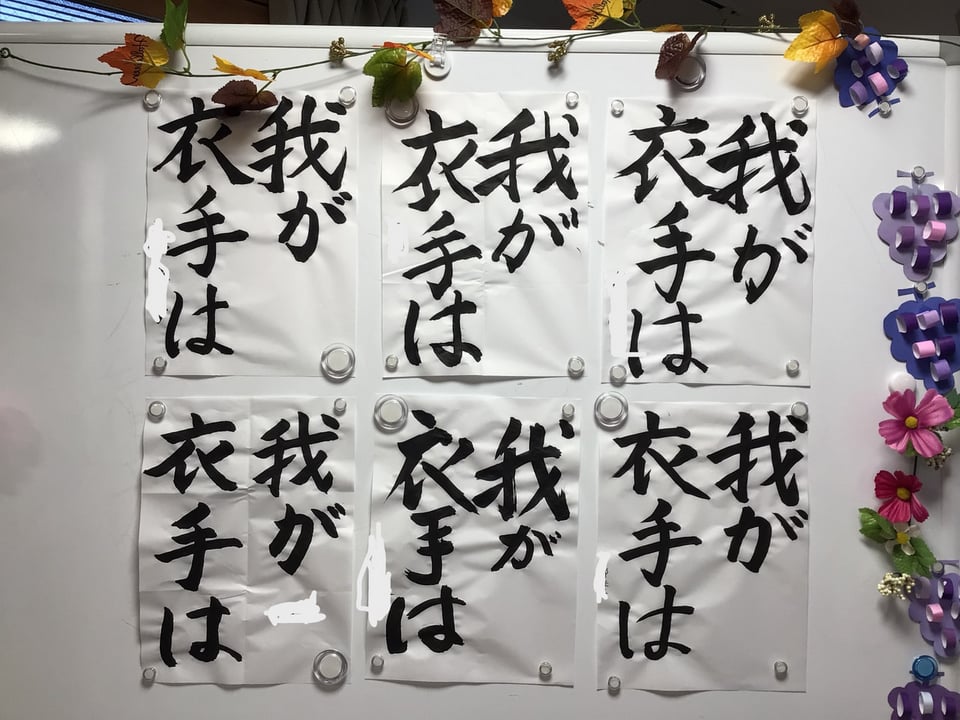 我が
衣手は
我が
衣手は
我が
衣手は
我が
衣手は
我が
衣手は
我が
衣手は